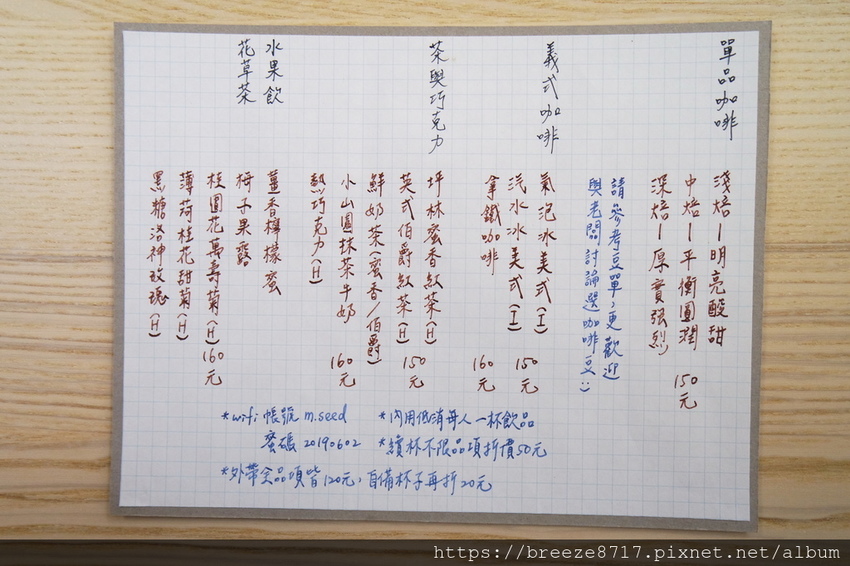 單品咖啡
淺焙－明亮酸甜
中焙－平衡圓潤 150元
深焙－厚實強烈
請參考豆單，更歡迎
與老闆討論選咖啡豆:)
義式咖啡
氣泡冰美式(I)
汽水冰美式(I) 150元
拿鐵咖啡 160元
茶與巧克力
坪林蜜香紅茶(H)
英式伯爵紅茶(H) 150元
鮮奶茶(蜜香/伯爵)
小山園抹茶牛奶 160元
熱巧克力(H)
水果飲
花草茶
薑香檸檬蜜
梅子果露
桂圓花萬壽菊(H) 160元
薄荷桂花甜菊(H)
黑糖洛神玫瑰(H)
*wifi 帳號 m.seed
蜜碼 20190602
*內用低消每人一杯飲品
*續杯不限品項折價50元
*外帶全品項皆120元，自備杯子再折20元
https://breeze8717.pixnet.net/album